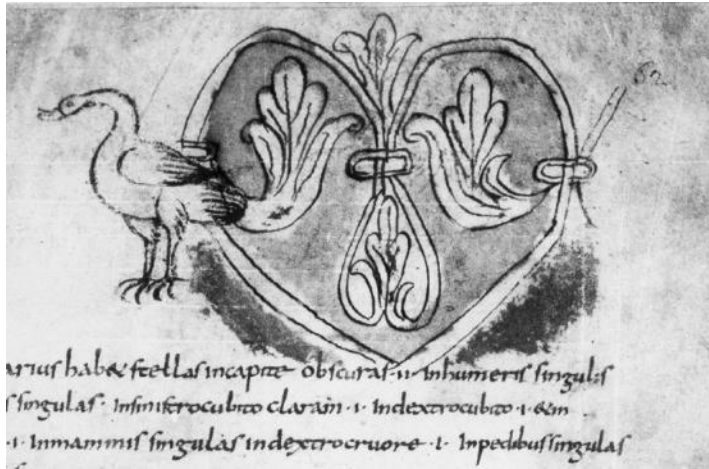 62
arius habet stellas incapite obscuras .ii. Inhumeris singulis
s singulas . Insinistrocubito claram .i. Indextrocubito .i. &in
.i. Inmammis singulas indextrocruore .i. Inpedibussingulas